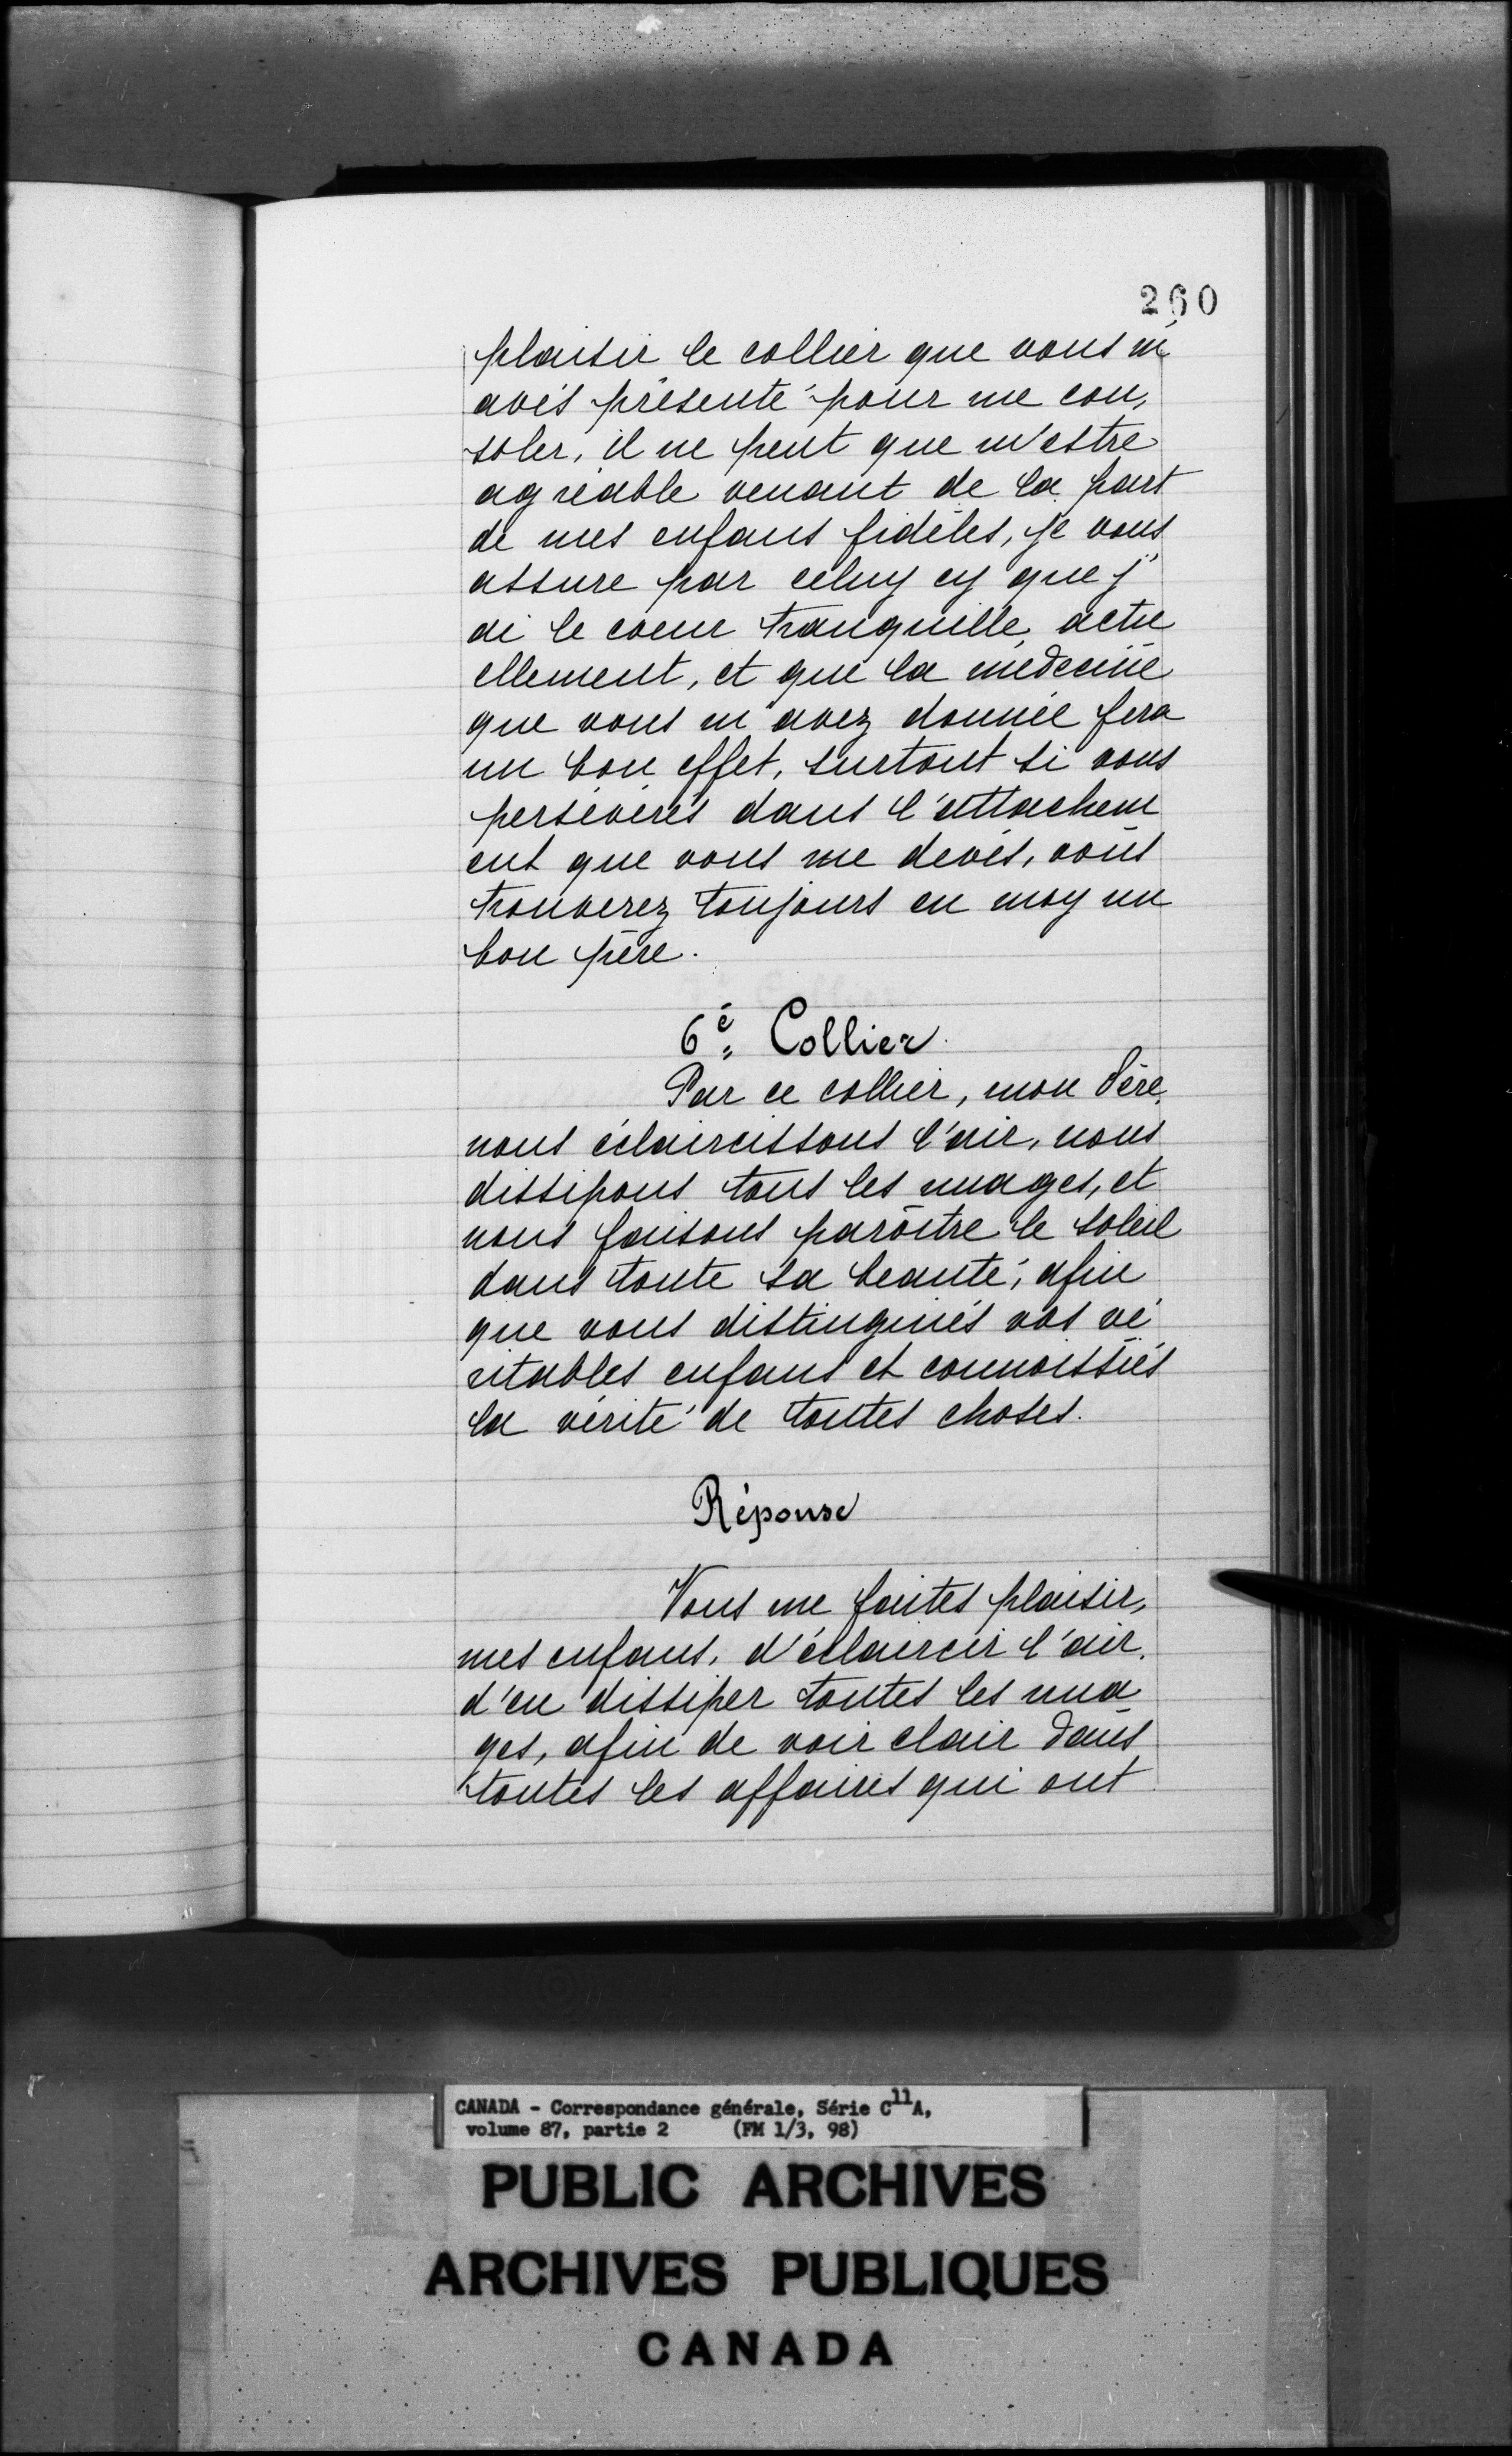 260
plaisir le collier que vous m'
avés présenté pour me con,
soler, il ne peut que m'estre
agréable venant de la part
de mes enfans fidèles, je vous
assure par celuy cy que j'
ai le coeur tranquille, actu
ellement, et que la médecine
que vous m'avez donnée fera
un bon effet, surtout si vous
persévérés dans l'attachem
ent que vous me devés, vous
trouverez toujours en moy un
bon père.
6e. Collier.
Par ce collier, mon Père,
nous éclaircissons l'air, nous
dissipons tous les nuages, et
nous faisons paroître le soleil
dans toute sa beauté, afin
que vous distinguiés vos vé
ritables enfans et connoissiés
la vérité de toutes choses.
Réponse
Vous me faites plaisir,
mes enfans, d'éclaircir l'air,
d'en dissiper toutes les nua
ges, afin de voir clair dans
toutes les affaires qui ont
CANADA - Correspondance générale, Série C11A,
volume 87, partie 2 (FM 1/3, 98)
PUBLIC ARCHIVES
ARCHIVES PUBLIQUES
CANADA